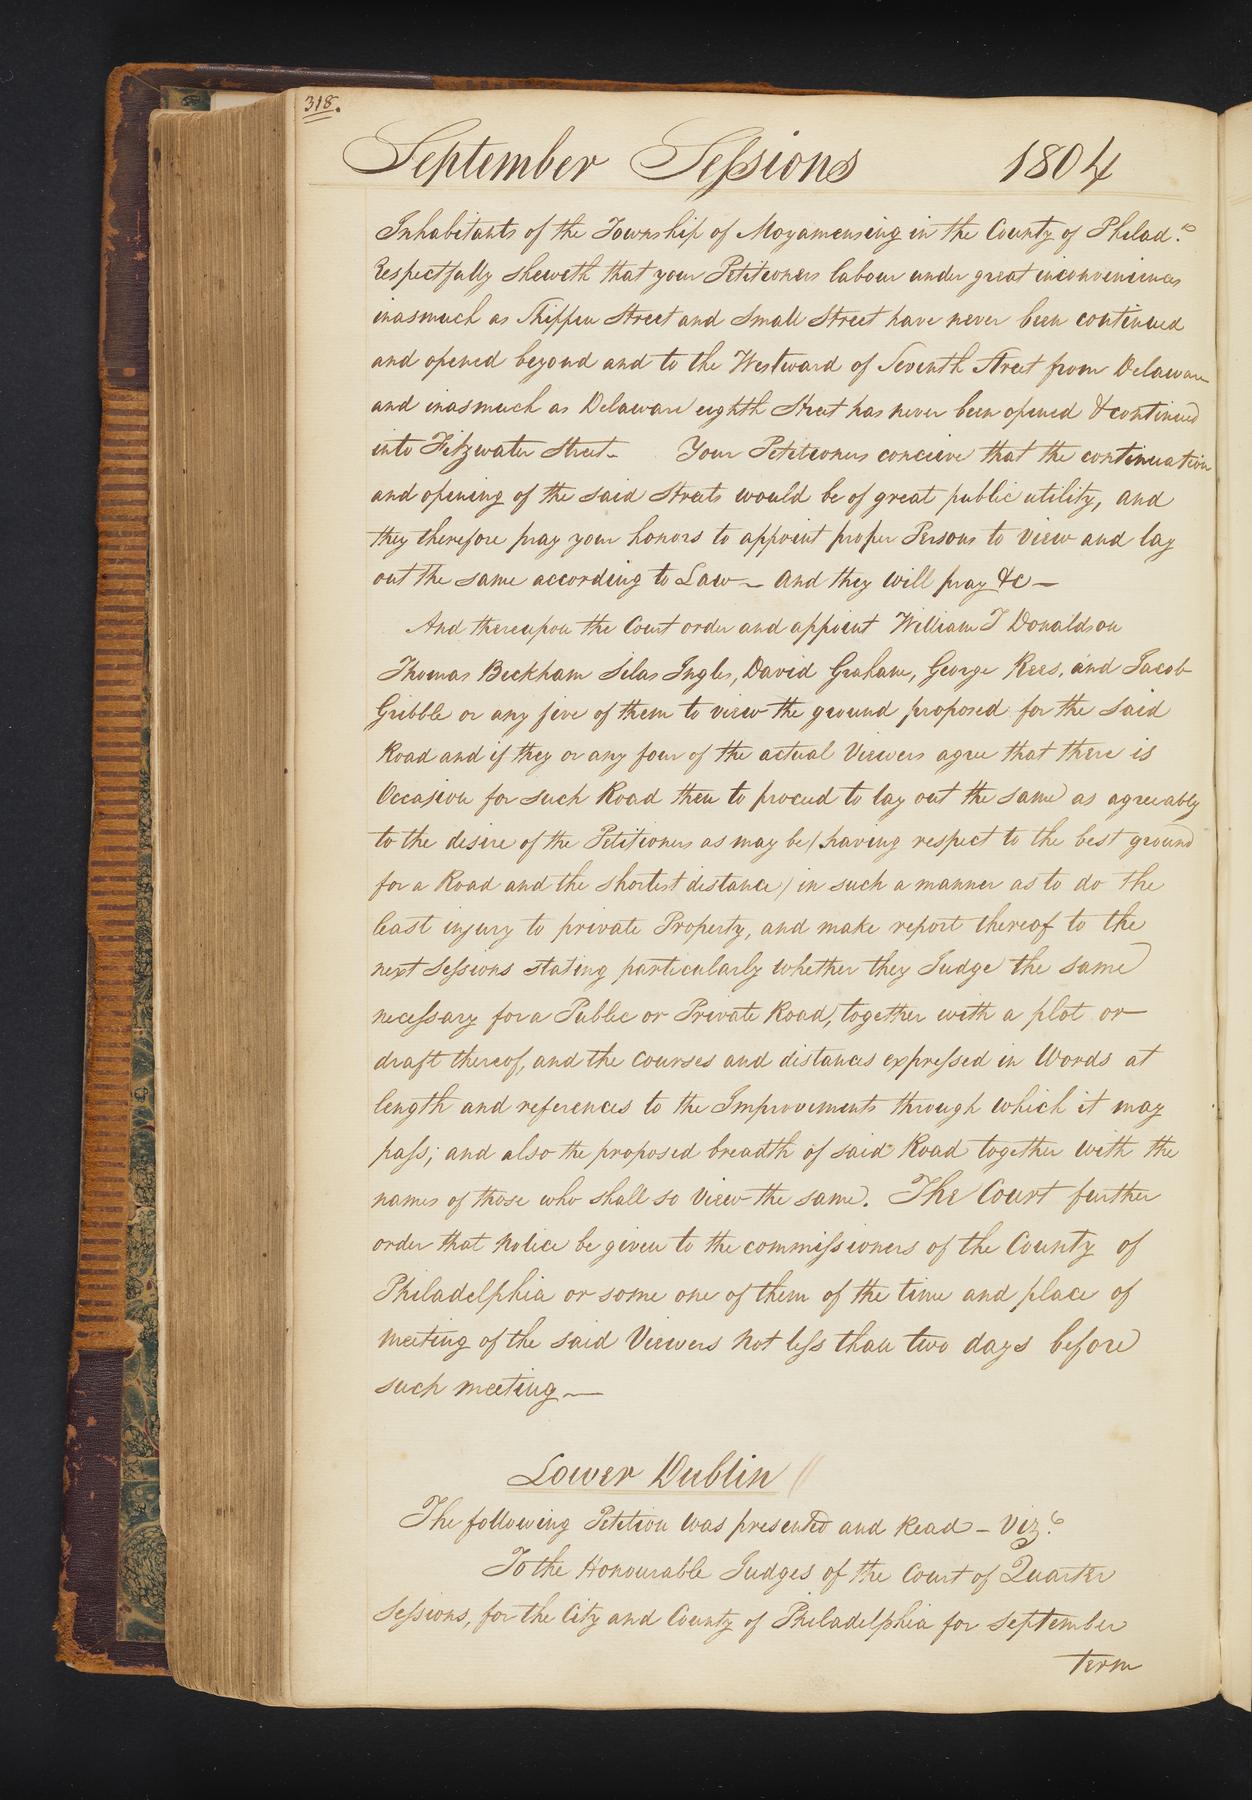 318.
September Sessions 1804
Inhabitants of the Township of Moyamensing in the County of Philad.ª
Respectfully sheweth that your Petitioners labour under great inconveniences
inasmuch as Shippen Street and Small Street have never been continued
and opened beyond and to the Westward of Seventh Street from Delaware
and inasmuch as Delaware eighth Street has never been opened & continued
into Fitzwater Street – Your Petitioners concieve that the continuation
and opening of the said Streets would be of great public utility, and
they therefore pray your honors to appoint proper Persons to view and lay
out the same according to Law – And they will pray &c –
And thereupon the Court order and appoint William T Donaldson
Thomas Beckham Silas Ingles, David Graham, George Rees, and Jacob
Gribble or any five of them to view the ground proposed for the said
Road and if they or any four of the actual Viewers agree that there is
Occasion for such Road then to proceed to lay out the same as agreeably
to the desire of the Petitioners as may be / having respect to the best ground
for a Road and the shortest distance / in such a manner as to do the
least injury to private Property, and make report thereof to the
next Sessions stating particularly whether they Judge the same
necessary for a Public or Private Road, together with a plot or
draft thereof, and the courses and distances expressed in Words at
length and references to the Improvements through which it may
pass; and also the proposed breadth of said Road together with the
names of those who shall so view the same. The Court further
order that Notice be given to the commissioners of the County of
Philadelphia or some one of them of the time and place of
meeting of the said Viewers Not less than two days before
such meeting –
Lower Dublin //
The following Petition was presented and Read – Viz.t
To the Honourable Judges of the Court of Quarter
Sessions, for the City and County of Philadelphia for September
Term